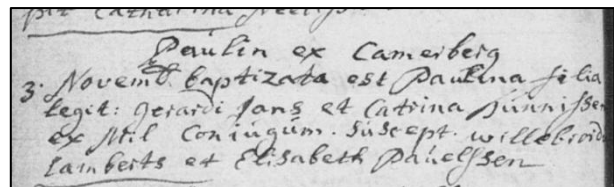 pit Catharina
Paulin ex Camerberg
3. Novemb. baptizata est Paulina filia
legit: Gerardi Jans et Catrina Junnissen
ex Mil Coniugum. Suscept. willebrord
Lamberts et Elisabeth Pauelssen